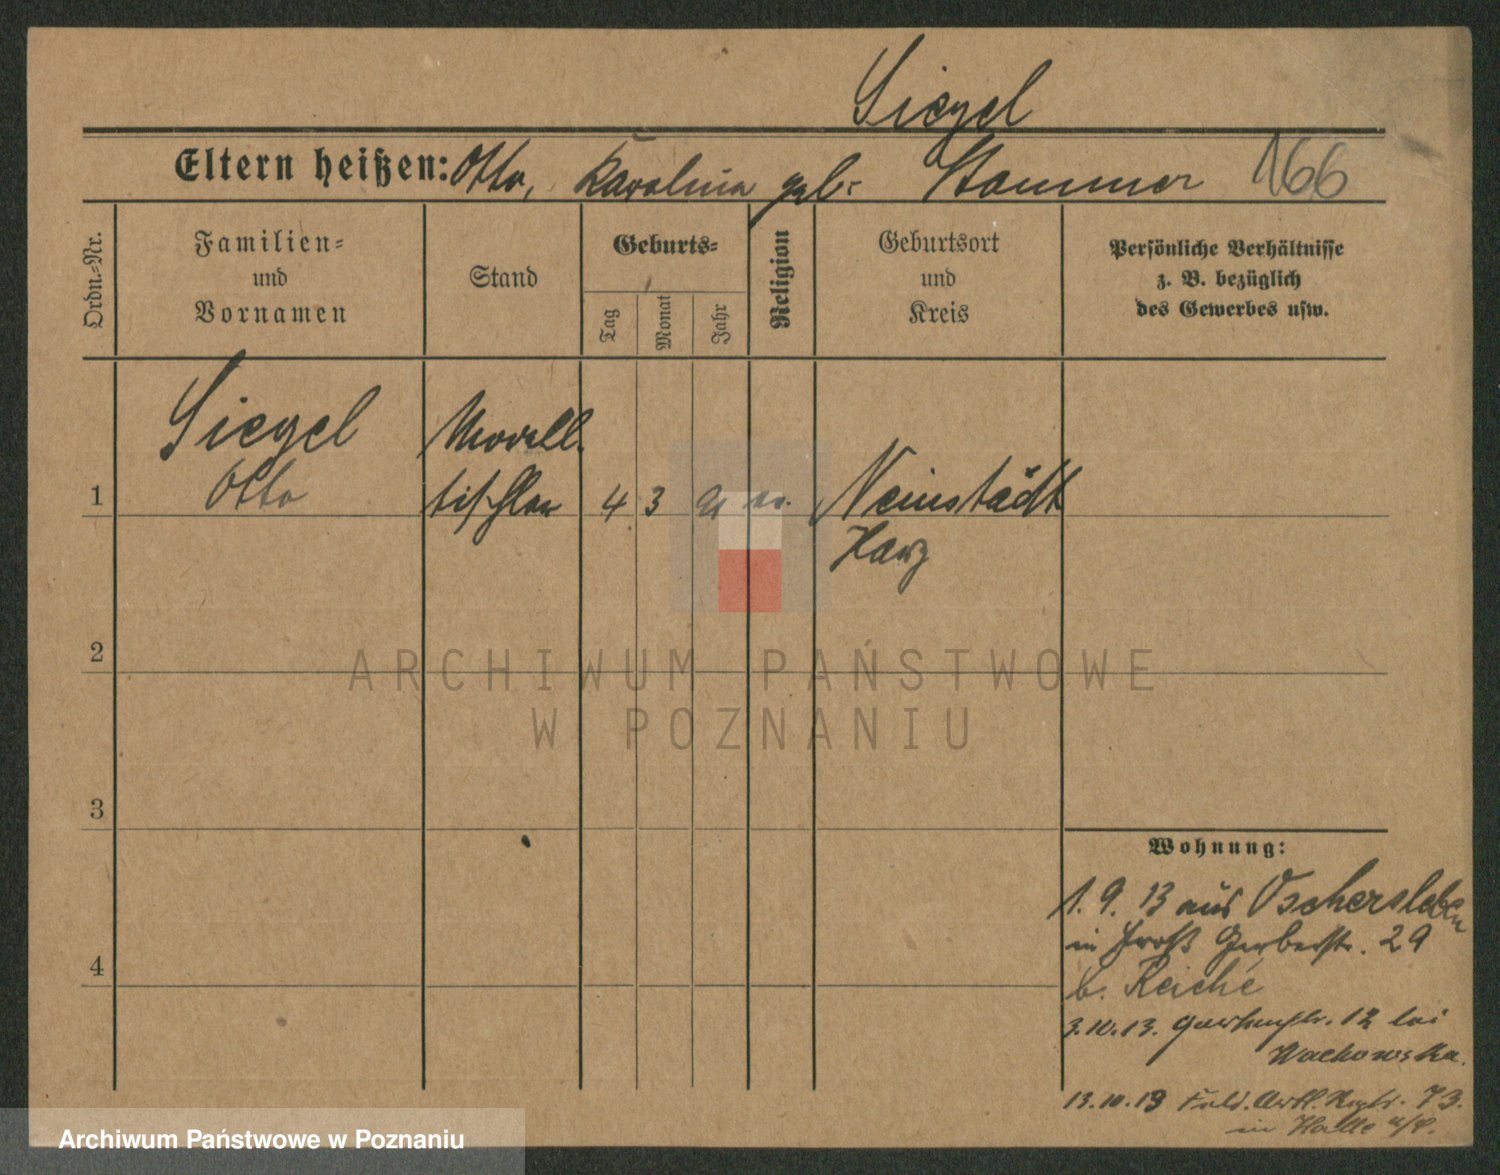 Siegel
Eltern heißen: Otto, Karolina geb. Stammer 166
Ordn.=Nr.
Familien=
und
Vornamen
Stand
Geburts=
Tag
Monat
Jahr
Religion
Geburtsort
und
Kreis
Persönliche Verhältnisse
z. B. bezüglich
des Gewerbes usw.
1
Siegel
Otto
Modell
tischler
4
3
ev.
Neinstedt
Harz
2
3
4
Wohnung:
1. 9. 13 aus Oschersleben
in Groß Gerberstr. 29
b. Reiche
3.10.13. Gartenstr. 12 bei
Wachowska.
13.10.13 Feld. Artl. Regtr. 73.
in Halle a/S.
ARCHIWUM PAŃSTWOWE
W POZNANIU
Archiwum Państwowe w Poznaniu